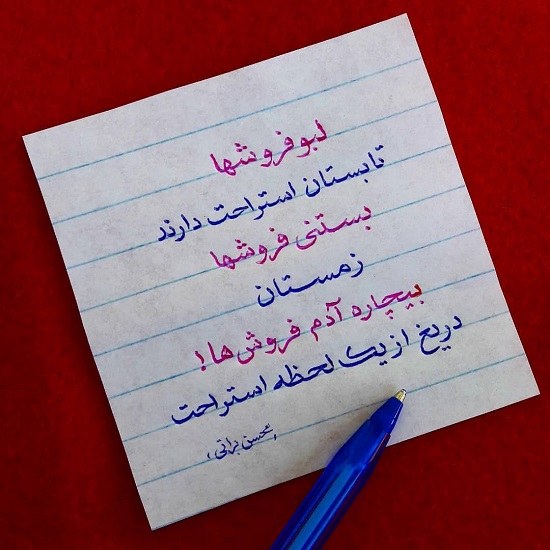 لبوفروشها
تابستان استراحت دارند
بستنی فروشها
زمستان
بیچاره آدم فروش‌ها!
دریغ از یک لحظه استراحت
«محسن براتی»